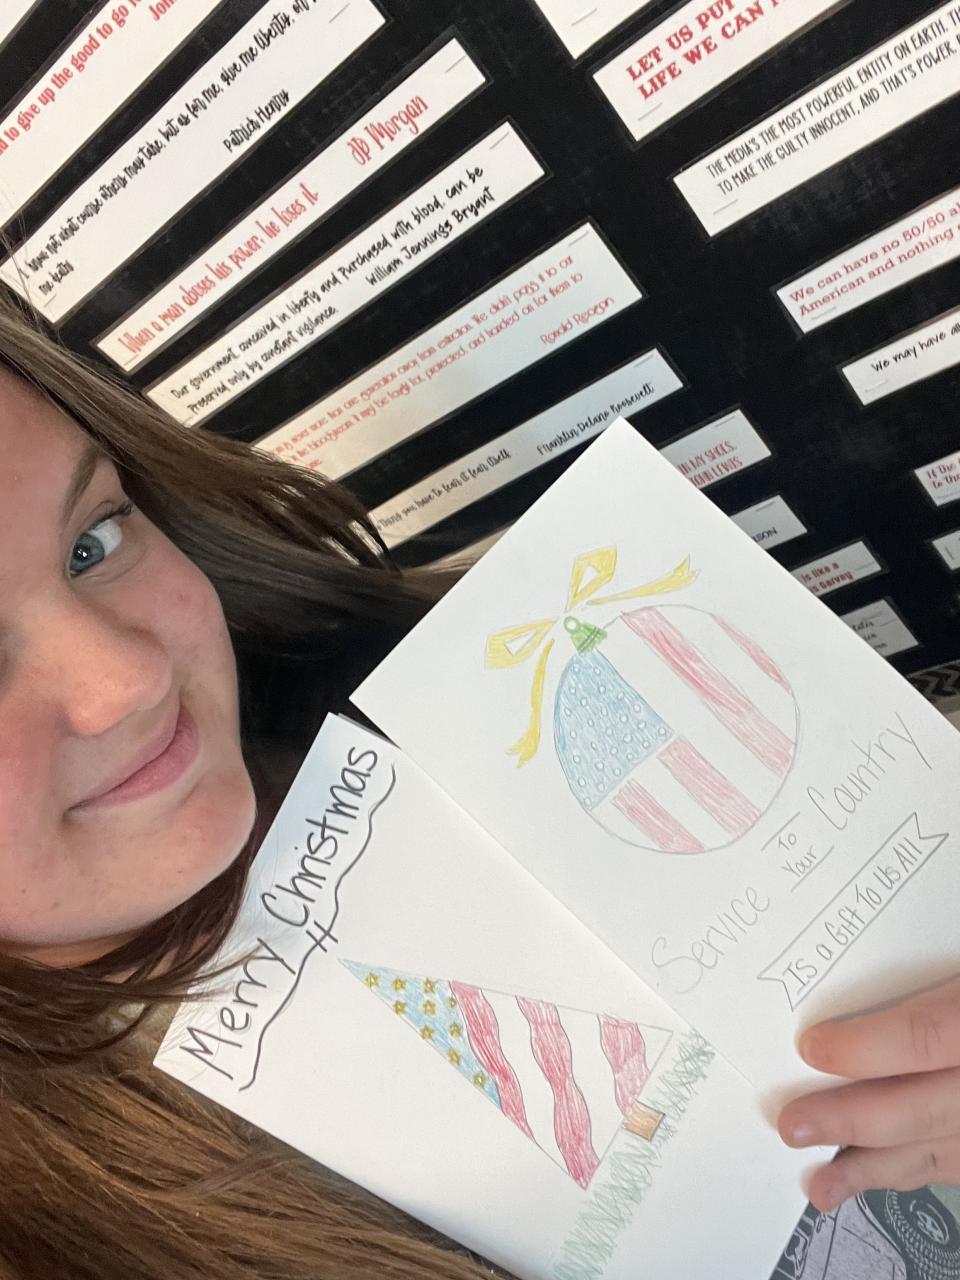 d to give up the good to go
John
know not what course others may take, but as for me, give me liberty, or
me death
Patrick Henry
When a man abuses his power, he loses it.
Jp Morgan
Our government, conceived in liberty and Purchased with blood, can be
Preserved only by constant vigilance.
William Jennings Bryant
is never more than one generation away from extinction. We didn't pass it to our
in the bloodstream. It may be fought for, protected, and handed on for them to
Ronald Reagan
thing you have to fear is fear itself
Franklin Delano Roosevelt
LET US PUT
LIFE WE CAN
THE MEDIA'S THE MOST POWERFUL ENTITY ON EARTH. TH
TO MAKE THE GUILTY INNOCENT, AND THAT'S POWER.
We can have no 50/50 al
American and nothing
We may have all
IN MY SHOES.
JOHN LEWIS
If the
to the
is like a
Garvey
Service
To
Your
Country
Is a Gift To Us All
Merry Christmas